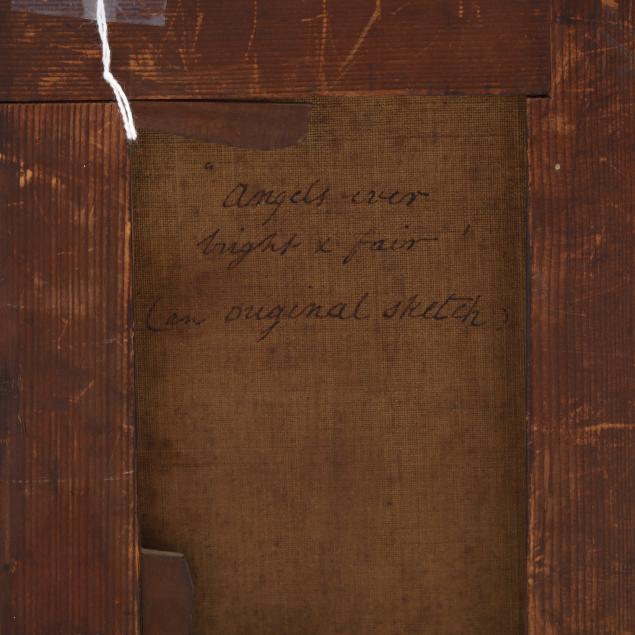 "Angels ever
bright & fair'
(an original sketch)